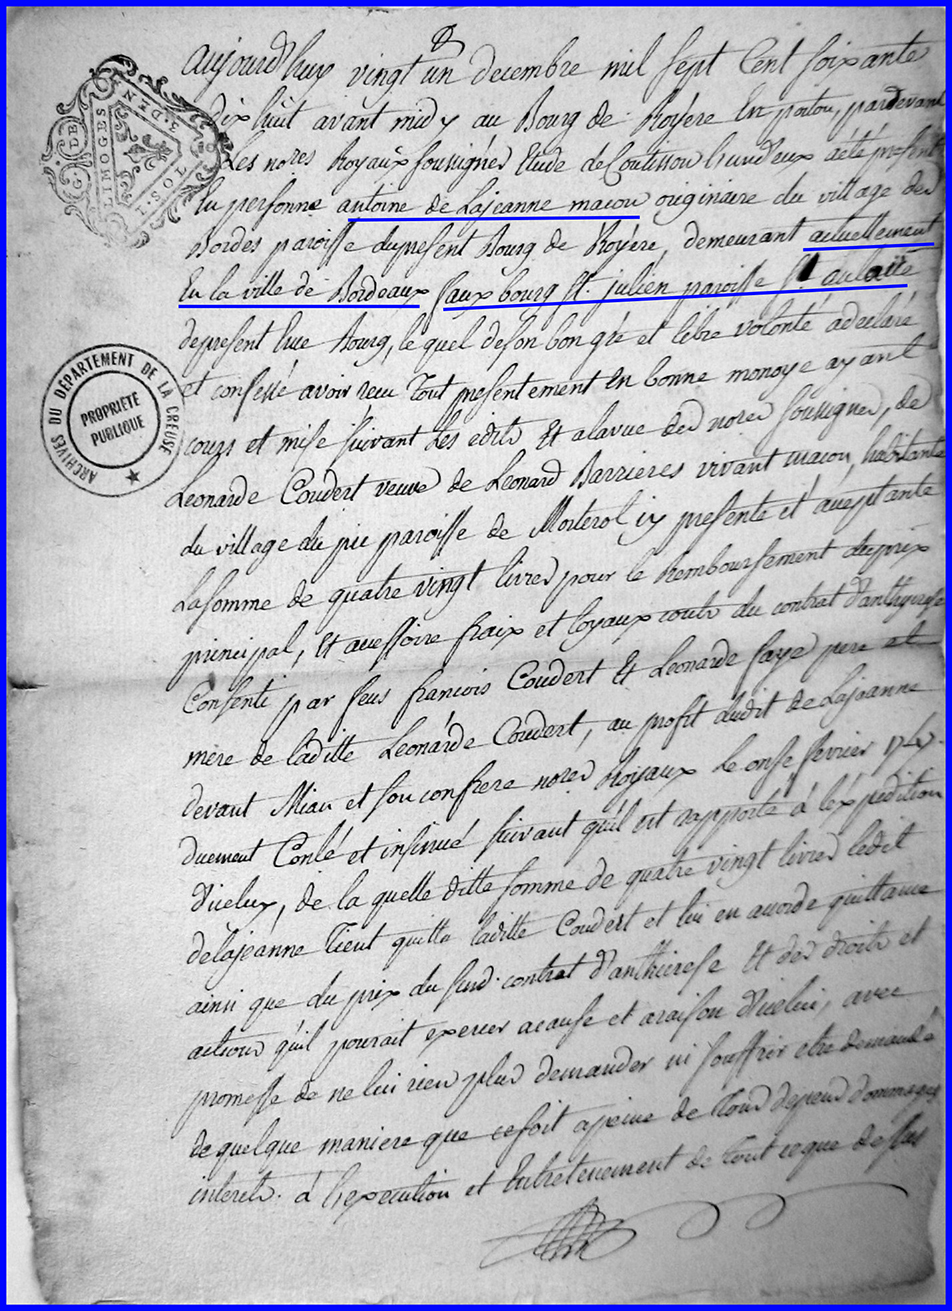 aujourd'huy vingt un decembre mil sept Cent soixante
dix huit avant midy au Bourg de Royère en poitou, pardevant
Les nores Royaux soussignes Etude deCoutisson heure d'eux a été present
En personne antoine de Lajeanne macon originaire du village des
Bordes paroisse dupresent Bourg de Royère, demeurant actuellement
En la ville de Bordeaux faux bourg St. julien paroisse Ste. aulaire
depresent En ce Bourg, le quel deson bon gré et libre volonté adeclaré
et confessé avoir receu Tout presentement En bonne monoye ayant
cours et mise suivant Les edits Et alavue des nores soussignes, de
Leonarde Coudert veuve de Leonard Barrieres vivant macon, habitante
du village du pu paroisse de Morterol icy presente et aceptante
Lasomme de quatre vingt livres pour le Remboursement duprix
principal, Et accessoire fraix et loyaux couts du contrat d'antichrese
Consenti par feus francois Coudert Et Leonarde faye pere et
mere de laditte Leonarde Coudert, au profit dudit de Lajeanne
devant Miau et son confrere nores Royaux Le onse fevrier 1747.
duement Conlé et insinué suivant qu'il est rapporté à l'expedition
d'icelux, de la quelle ditte somme de quatre vingt livres ledit
delajeanne Tient quitte laditte Coudert et lui en acorde quittance
ainsi que du prix du susd. contrat d'anthicrese Et des droits et
actions qu'il pourait exercer acause et araison d'icelui, avec
promesse de ne lui rien plus demander ni souffrir etre demandé
de quelque maniere que cesoit apeine de Tous depens dommages
interets. à l'execution et Entretenement de Tout ceque dessus
G. DE LIMOGES
3 DEN
ARCHIVES DU DÉPARTEMENT DE LA CREUSE
PROPRIÉTÉ
PUBLIQUE